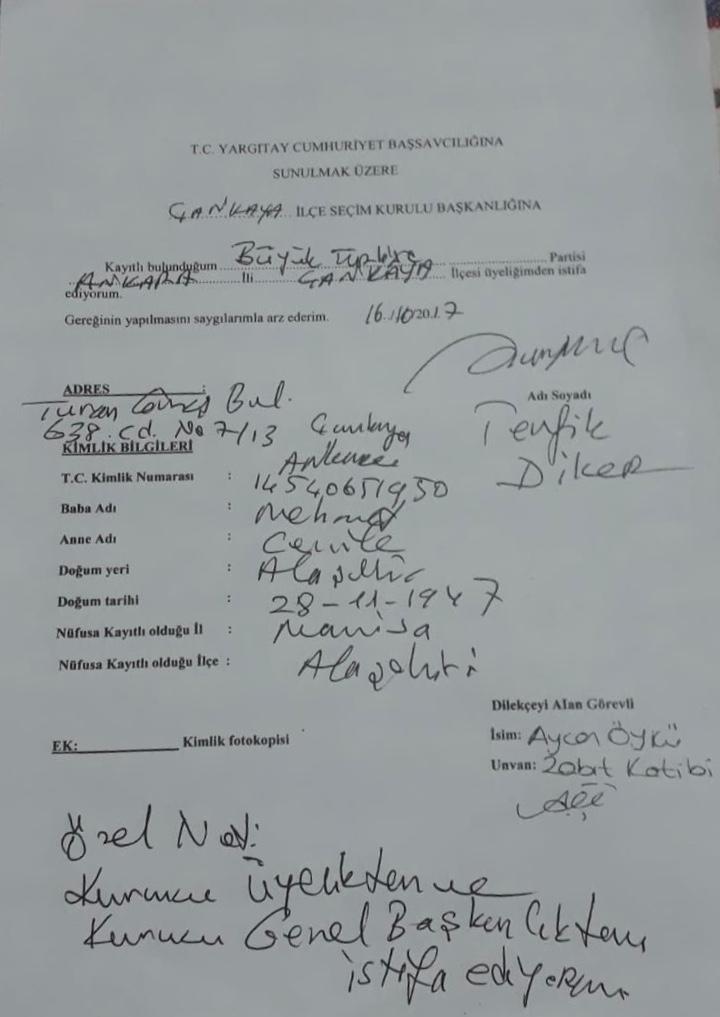 T.C. YARGITAY CUMHURİYET BAŞSAVCILIĞINA
SUNULMAK ÜZERE
ÇANKAYA İLÇE SEÇİM KURULU BAŞKANLIĞINA
Kayıtlı bulunduğum Büyük Türkiye Partisi
ANKARA İli ÇANKAYA İlçesi üyeliğimden istifa
ediyorum.
Gereğinin yapılmasını saygılarımla arz ederim. 16./10/20.1.7
ADRES :
Turan Güneş Bul.
638. Cd. No 7/13 Çankaya
Ankara
Adı Soyadı
Tevfik
Diker
KİMLİK BİLGİLERİ
T.C. Kimlik Numarası : 14540651950
Baba Adı : Mehmet
Anne Adı : Cemile
Doğum yeri : Alaşehir
Doğum tarihi : 28-11-1947
Nüfusa Kayıtlı olduğu İl : Manisa
Nüfusa Kayıtlı olduğu İlçe : Alaşehir
Dilekçeyi Alan Görevli
İsim: Ayça ÖYKÜ
Unvan: Zabıt Katibi
EK: Kimlik fotokopisi
Özel Not:
Kurucu Üyelikten ve
Kurucu Genel Başkanlıktan
istifa ediyorum